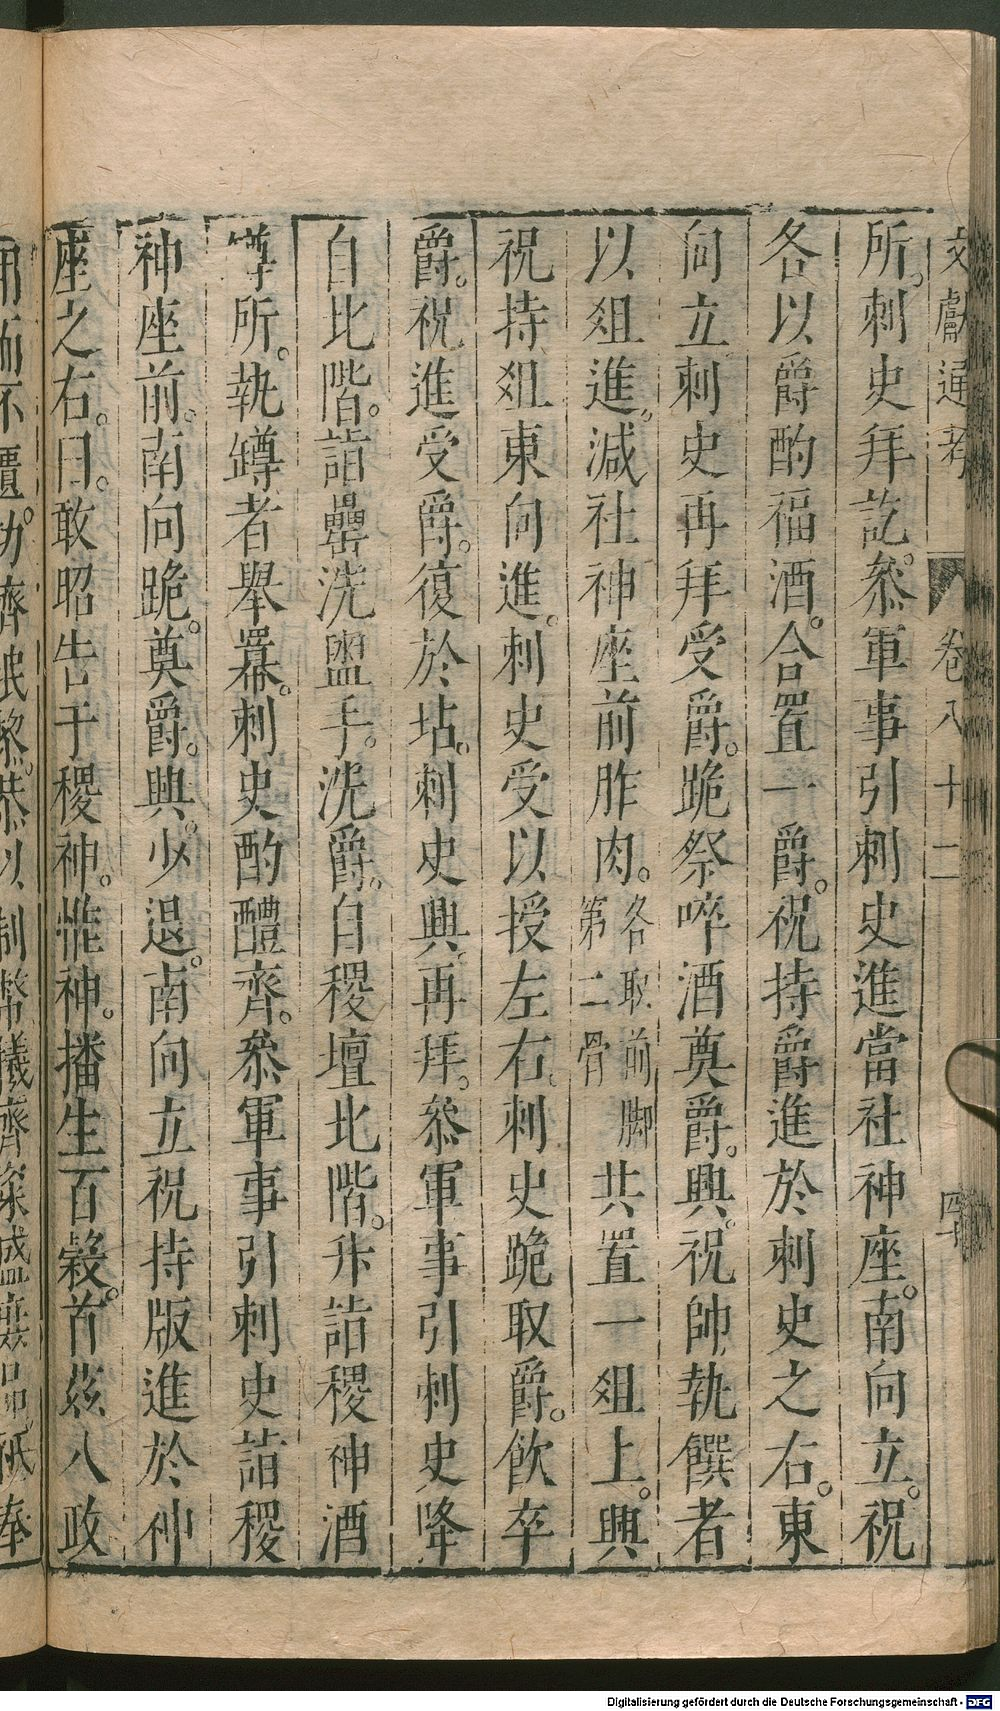 文獻通考 卷八十二 四十
所。刺史拜訖。叅軍事引刺史進當社神座。南向立。祝
各以爵酌福酒。合置一爵。祝持爵進於刺史之右。東
向立刺史再拜受爵。跪祭啐酒奠爵。興。祝帥執饌者
以俎進。減社神座前胙肉。各取前脚第二骨共置一俎上。興
祝持俎東向進。刺史受以授左右。刺史跪取爵。飲卒
爵。祝進受爵。復於坫。刺史興。再拜。叅軍事引刺史降
自北階。詣罍洗盥手。洗爵。自稷壇北階。升詣稷神酒
罇所。執罇者舉羃。刺史酌醴齊。叅軍事引刺史詣稷
神座前。南向跪。奠爵。興。少退。南向立祝持版進於神
座之右。曰。敢昭告于稷神。惟神。播生百穀。首茲八政
用而不匱。功濟甿黎。恭以制幣犧齊粢盛庶品祗奉
Digitalisierung gefördert durch die Deutsche Forschungsgemeinschaft - DFG